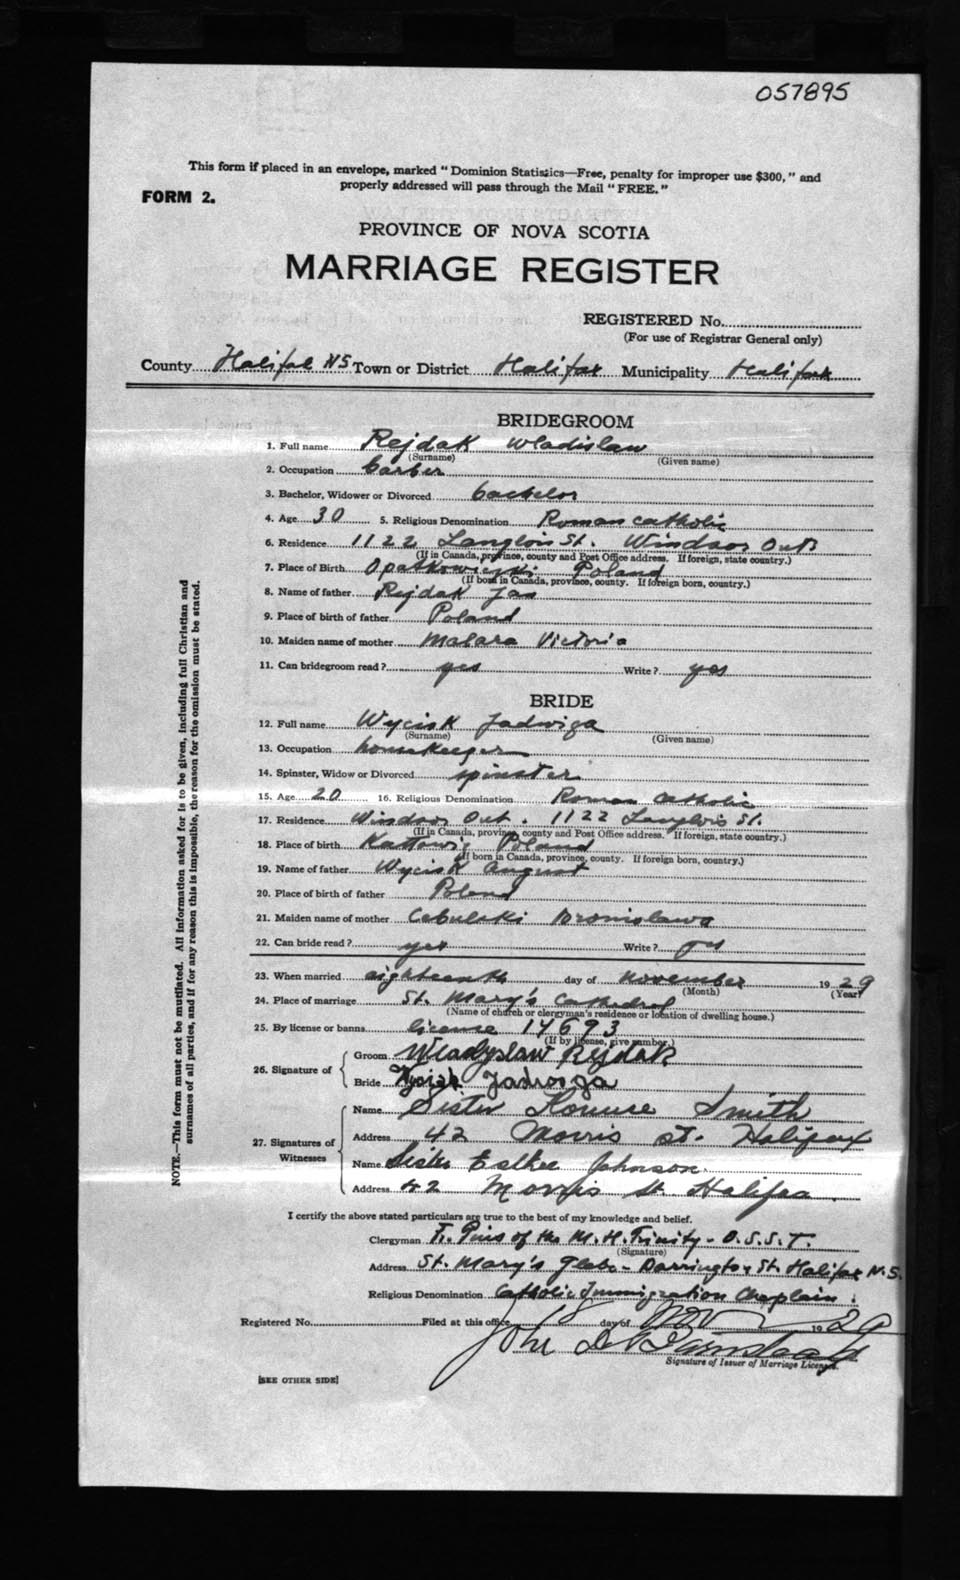 057895
This form if placed in an envelope, marked "Dominion Statistics—Free, penalty for improper use $300," and
properly addressed will pass through the Mail "FREE."
FORM 2.
PROVINCE OF NOVA SCOTIA
MARRIAGE REGISTER
REGISTERED No.
(For use of Registrar General only)
County Halifax NS Town or District Halifax Municipality Halifax
BRIDEGROOM
1. Full name Rejdak Wladislaw
(Surname) (Given name)
2. Occupation barber
3. Bachelor, Widower or Divorced bachelor
4. Age 30 5. Religious Denomination Roman catholic
6. Residence 1122 Langlois St. Windsor Ont.
(If in Canada, province, county and Post Office address. If foreign, state country.)
7. Place of Birth Poland
(If born in Canada, province, county. If foreign born, country.)
8. Name of father Rejdak Jan
9. Place of birth of father Poland
10. Maiden name of mother Malara Victoria
11. Can bridegroom read? yes Write? yes
BRIDE
12. Full name Wycisk Jadwiga
(Surname) (Given name)
13. Occupation housekeeper
14. Spinster, Widow or Divorced spinster
15. Age 20 16. Religious Denomination Roman Catholic
17. Residence Windsor Ont. 1122 Langlois St.
(If in Canada, province, county and Post Office address. If foreign, state country.)
18. Place of birth Kattowig Poland
(If born in Canada, province, county. If foreign born, country.)
19. Name of father Wycisk August
20. Place of birth of father Poland
21. Maiden name of mother Cebulski Bronislawa
22. Can bride read? yes Write? yes
23. When married eighteenth day of November 1929
(Month) (Year)
24. Place of marriage St. Mary's Cathedral
(Name of church or clergyman's residence or location of dwelling house.)
25. By license or banns license 14693
(If by license, give number.)
26. Signature of
Groom Wladyslaw Rejdak
Bride Wycisk Jadwiga
27. Signatures of Witnesses
Name Sister Smith
Address 42 Morris St. Halifax
Name Sister Esther Johnson.
Address 42 Morris St. Halifax
I certify the above stated particulars are true to the best of my knowledge and belief.
Clergyman Fr. Pius of the M. H. Trinity - O.S.S.T.
(Signature)
Address St. Mary's Glebe - Barrington St. Halifax N.S.
Religious Denomination Catholic Immigration Chaplain.
Registered No. Filed at this office 18 day of Nov 1929
John
Signature of Issuer of Marriage License.
[SEE OTHER SIDE]
NOTE.—This form must not be mutilated. All information asked for is to be given, including full Christian and
surnames of all parties, and if for any reason this is impossible, the reason for the omission must be stated.